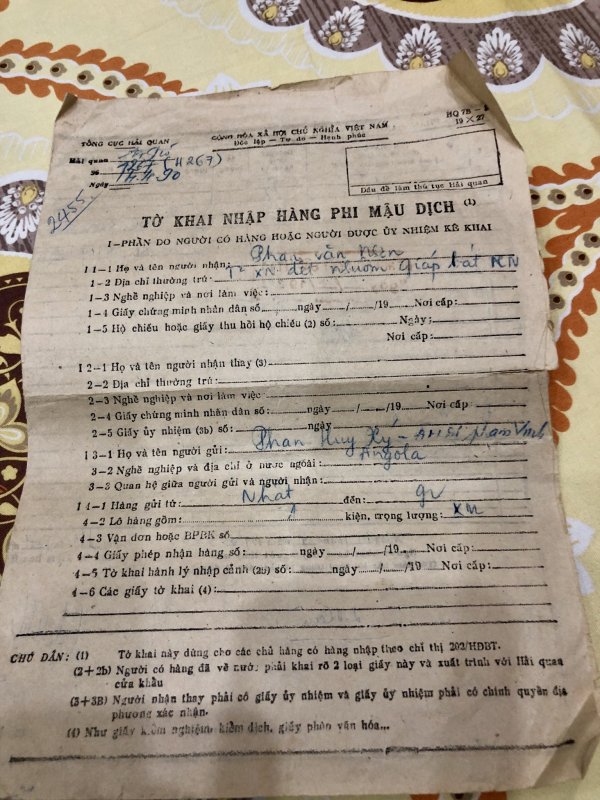 TỔNG CỤC HẢI QUAN
CỘNG HÒA XÃ HỘI CHỦ NGHĨA VIỆT NAM
Độc lập — Tự do — Hạnh phúc
HQ 7B
19 × 27
Hải quan
Số (H267)
Ngày 90
2455
Dấu đề làm thủ tục Hải quan
TỜ KHAI NHẬP HÀNG PHI MẬU DỊCH (1)
I—PHẦN DO NGƯỜI CÓ HÀNG HOẶC NGƯỜI ĐƯỢC ỦY NHIỆM KÊ KHAI
I 1—1 Họ và tên người nhận: Phan văn
1—2 Địa chỉ thường trú: XN dệt nhuộm Giáp bát HN
1—3 Nghề nghiệp và nơi làm việc:
1—4 Giấy chứng minh nhân dân số: ngày / /19 Nơi cấp:
1—5 Hộ chiếu hoặc giấy thu hồi hộ chiếu (2) số: Ngày:
Nơi cấp:
I 2—1 Họ và tên người nhận thay (3)
2—2 Địa chỉ thường trú:
2—3 Nghề nghiệp và nơi làm việc
2—4 Giấy chứng minh nhân dân số: ngày / /19 Nơi cấp:
2—5 Giấy ủy nhiệm (3b) số: ngày
I 3—1 Họ và tên người gửi: Phan Huy Ký —
3—2 Nghề nghiệp và địa chỉ ở nước ngoài: Angola
3—3 Quan hệ giữa người gửi và người nhận:
I 4—1 Hàng gửi từ: Nhật đến:
4—2 Lô hàng gồm: 1 kiện, trọng lượng: XM
4—3 Vận đơn hoặc BPBK số
4—4 Giấy phép nhận hàng số: ngày / /19 Nơi cấp:
4—5 Tờ khai hành lý nhập cảnh (2b) số: ngày / /19 Nơi cấp:
4—6 Các giấy tờ khai (4):
CHÚ DẪN: (1) Tờ khai này dùng cho các chủ hàng có hàng nhập theo chỉ thị 202/HĐBT.
(2+2b) Người có hàng đã về nước phải khai rõ 2 loại giấy này và xuất trình với Hải quan
cửa khẩu
(3+3B) Người nhận thay phải có giấy ủy nhiệm và giấy ủy nhiệm phải có chính quyền địa
phương xác nhận.
(4) Như giấy kiểm nghiệm, kiểm dịch, giấy phép văn hóa...